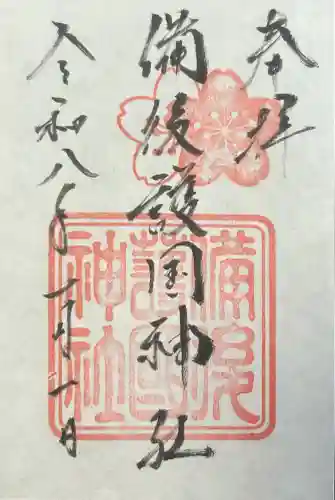 奉拝
備後護国神社
令和八年一月一日
備後
護国
神社